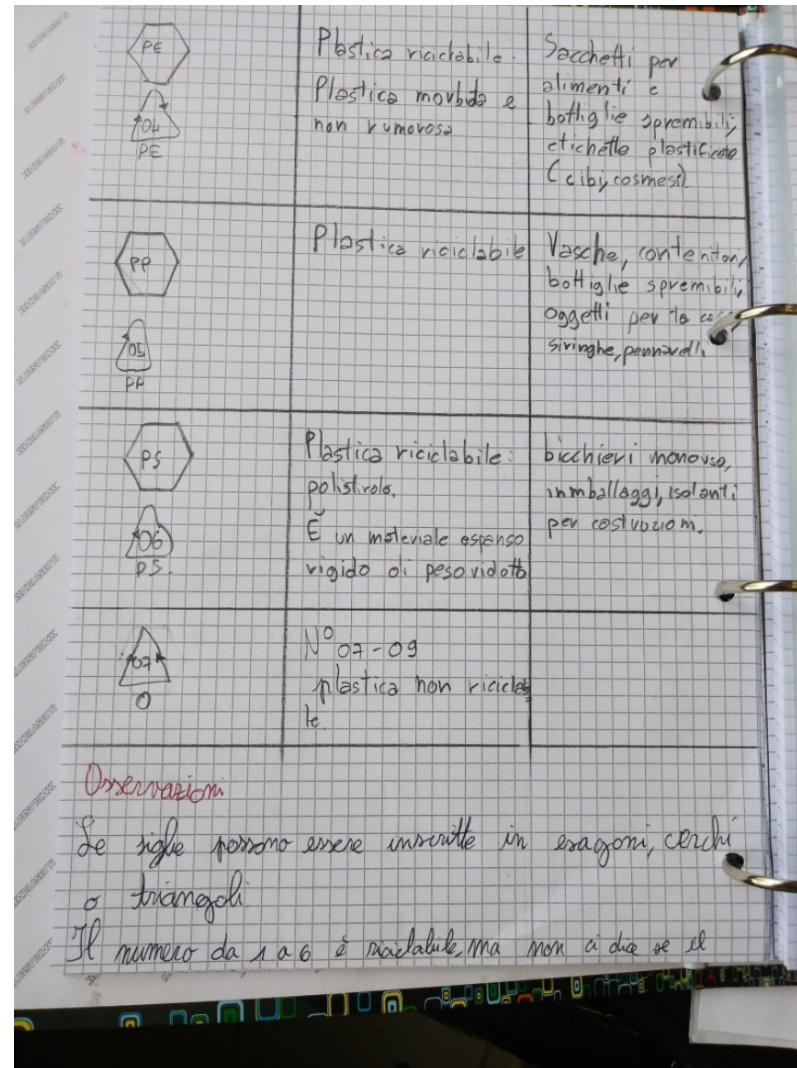 PE
04
PE
Plastica riciclabile.
Plastica morbida e
non rumorosa
Sacchetti per
alimenti e
bottiglie spremibili,
etichette plastificate
(cibi, cosmesi)
PP
05
PP
Plastica riciclabile
Vasche, contenitori,
bottiglie spremibili,
oggetti per la
siringhe, pennarelli
PS
06
PS.
Plastica riciclabile:
polistirolo.
È un materiale espanso
rigido di peso ridotto
bicchieri monouso,
inmballaggi, isolanti
per costruzioni.
07
O
N° 07-09
plastica non riciclabi
le.
Osservazioni
Le sigle possono essere inscritte in esagoni, cerchi
o triangoli.
Il numero da 1 a 6 è riciclabile, ma non ci dice se il